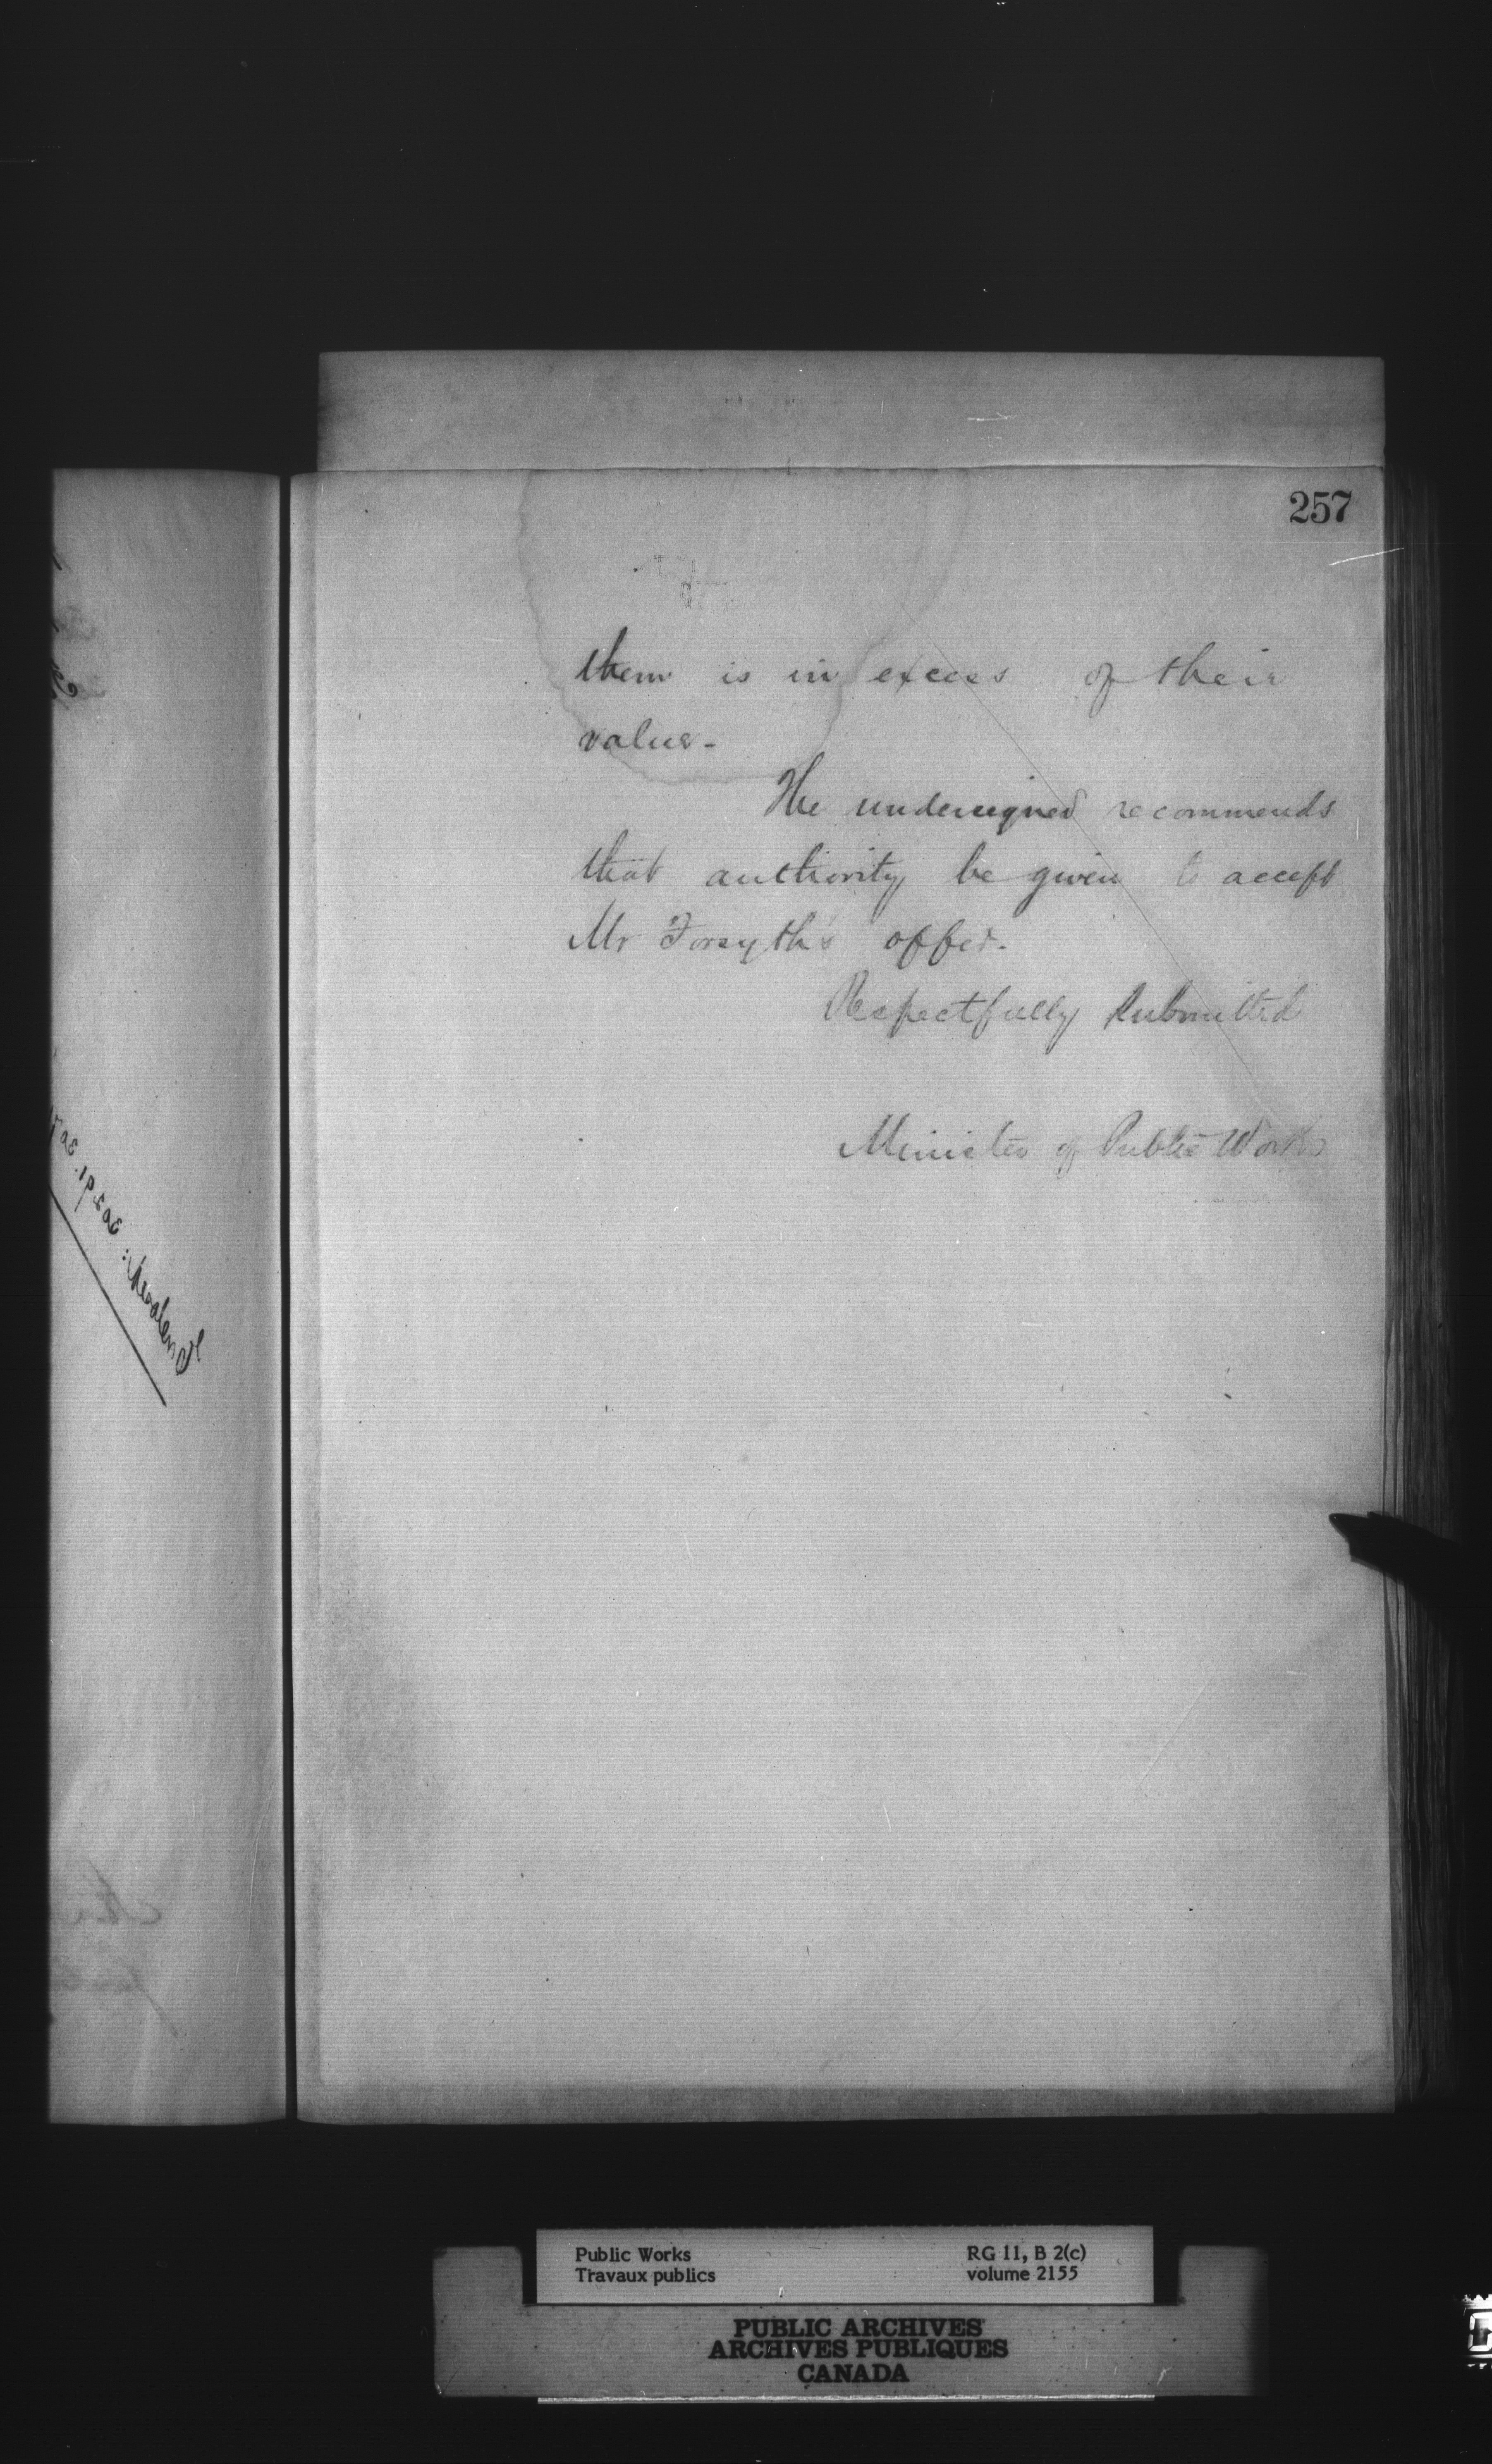 257
them is in excess of their
value-
The undersigned recommends
that authority be given to accept
Mr Forsyth's offer.
Respectfully Submitted
Minister of Public Works
Public Works
Travaux publics
RG 11, B 2(c)
volume 2155
PUBLIC ARCHIVES
ARCHIVES PUBLIQUES
CANADA